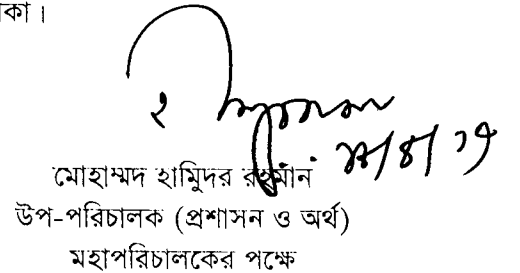 কা।
মোহাম্মদ হামিুদর রহমান
উপ-পরিচালক (প্রশাসন ও অর্থ)
মহাপরিচালকের পক্ষে